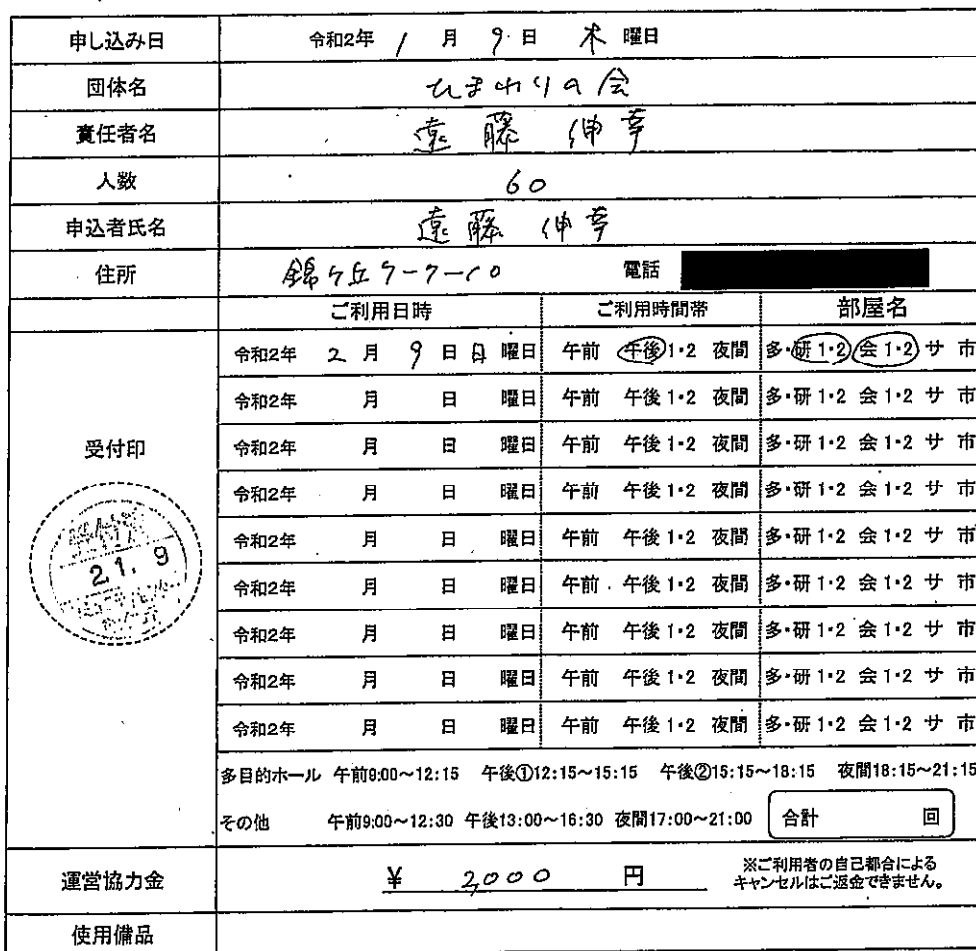 申し込み日 令和2年 1 月 9 日 木 曜日
団体名 ひまわりの会
責任者名 遠藤 伸幸
人数 60
申込者氏名 遠藤 伸幸
住所 錦ケ丘 電話
ご利用日時 ご利用時間帯 部屋名
令和2年 2 月 9 日 日 曜日 午前 午後 1・2 夜間 多・研 1・2 会 1・2 サ 市
令和2年 月 日 曜日 午前 午後 1・2 夜間 多・研 1・2 会 1・2 サ 市
受付印 令和2年 月 日 曜日 午前 午後 1・2 夜間 多・研 1・2 会 1・2 サ 市
令和2年 月 日 曜日 午前 午後 1・2 夜間 多・研 1・2 会 1・2 サ 市
令和2年 月 日 曜日 午前 午後 1・2 夜間 多・研 1・2 会 1・2 サ 市
21. 9 令和2年 月 日 曜日 午前 午後 1・2 夜間 多・研 1・2 会 1・2 サ 市
令和2年 月 日 曜日 午前 午後 1・2 夜間 多・研 1・2 会 1・2 サ 市
令和2年 月 日 曜日 午前 午後 1・2 夜間 多・研 1・2 会 1・2 サ 市
令和2年 月 日 曜日 午前 午後 1・2 夜間 多・研 1・2 会 1・2 サ 市
多目的ホール 午前9:00～12:15 午後①12:15～15:15 午後②15:15～18:15 夜間18:15～21:15
その他 午前9:00～12:30 午後13:00～16:30 夜間17:00～21:00 合計 回
運営協力金 ¥ 2,000 円 ※ご利用者の自己都合による
キャンセルはご返金できません。
使用備品